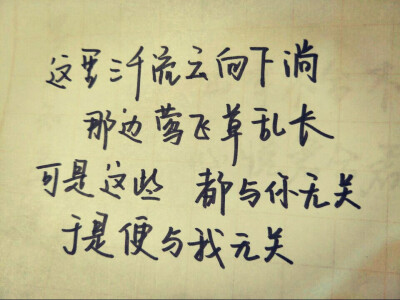 这里三千流云向下淌
那边莺飞草乱长
可是这些 都与你无关
于是便与我无关